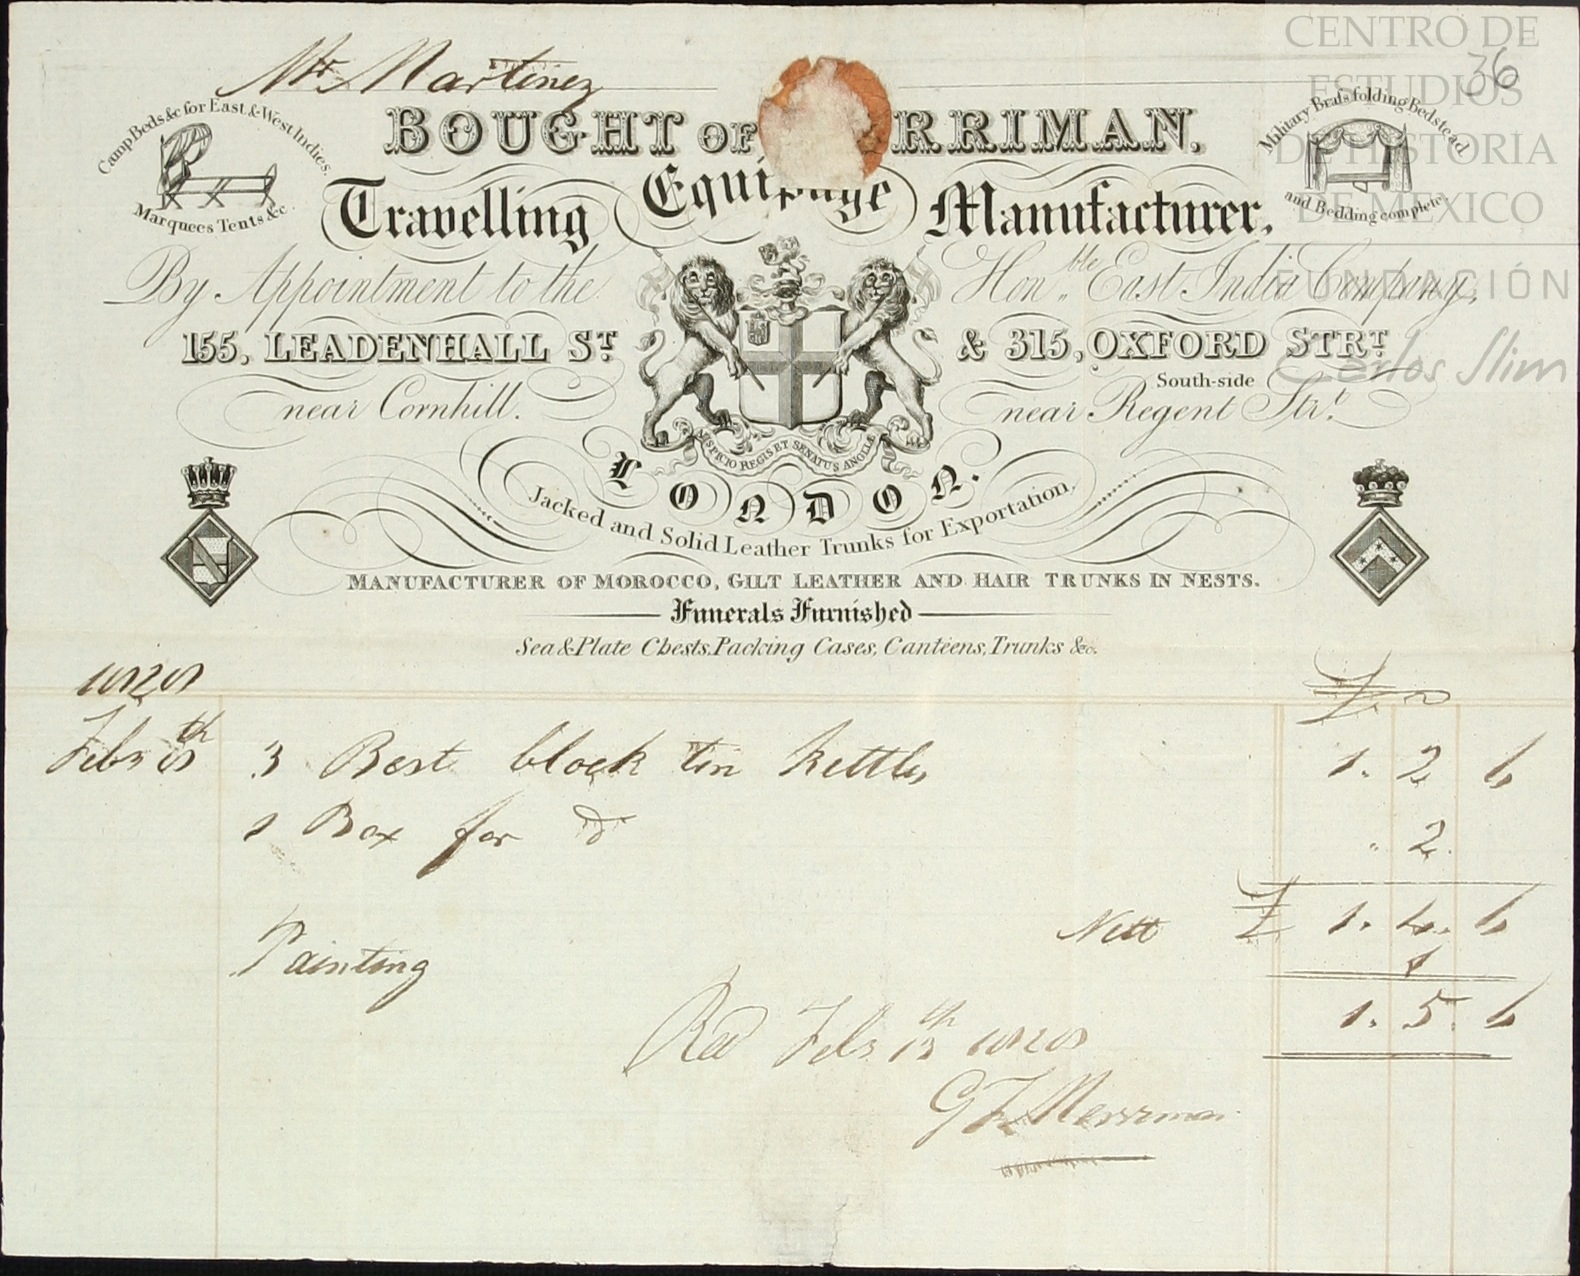 Mr Martinez
36
Camp Beds &c for East & West Indies.
Marquees Tents &c.
BOUGHT OF RRIMAN.
Military Brass folding Bedstead
and Bedding complete.
Travelling Equipage Manufacturer,
By Appointment to the Honble East India Company,
155, LEADENHALL ST & 315, OXFORD STRT
South-side
near Cornhill. near Regent Strt
AUSPICIO REGIS ET SENATUS ANGLIÆ
LONDON.
Jacked and Solid Leather Trunks for Exportation,
MANUFACTURER OF MOROCCO, GILT LEATHER AND HAIR TRUNKS IN NESTS.
Funerals Furnished
Sea & Plate Chests, Packing Cases, Canteens, Trunks &c.
1828 £
Feby 8th 3 Best block tin Kettles 1. 2 6
1 Box for do " 2.
Nett £ 1. 4. 6
Painting 1
1. 5. 6
Recd Feby 13th 1828
G F Merriman
CENTRO DE
ESTUDIOS
DE HISTORIA
DE MEXICO
FUNDACIÓN
Carlos Slim